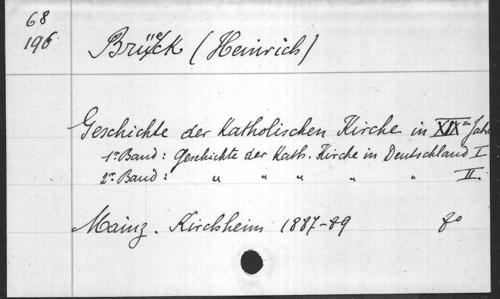 68
196
Brück (Heinrich)
Geschichte der Katholischen Kirche in XIXen Jahr
1r Band: Geschichte der Kath. Kirche in Deutschland I
2r Band: " " " " " II.
Mainz. Kirchheim 1887-89 8o